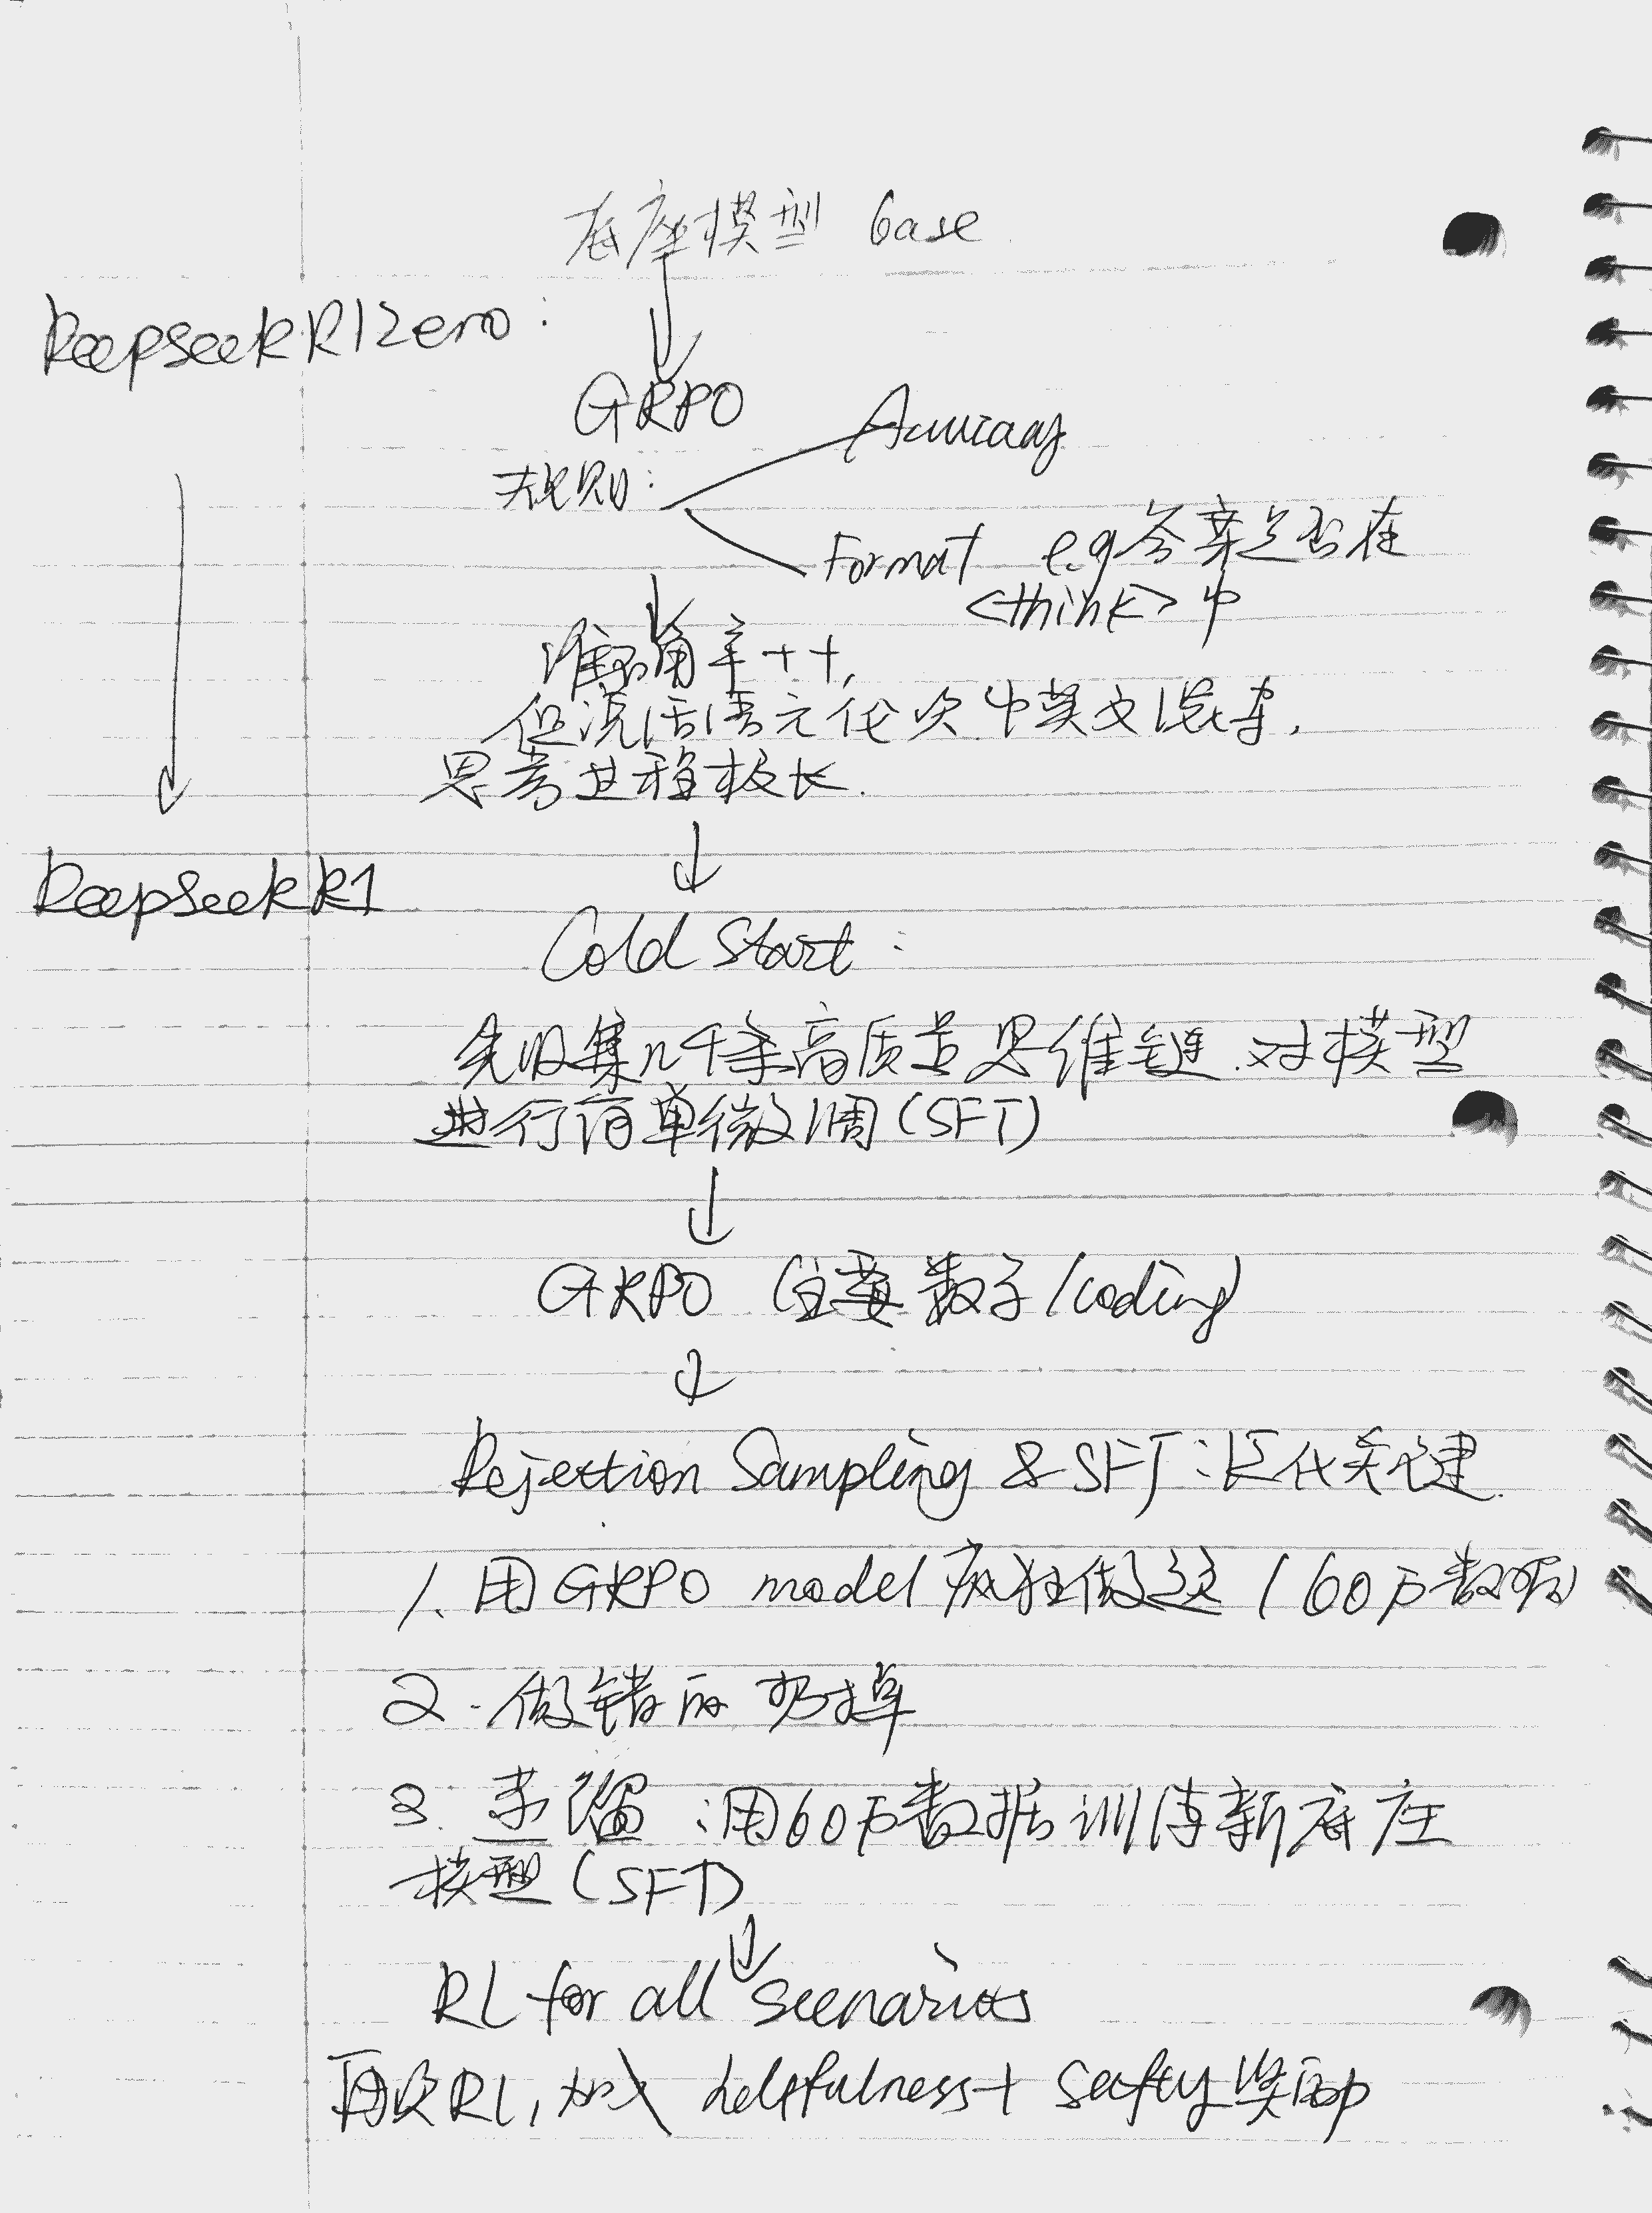 底座模型 base
DeepseekR1Zero:
GRPO
规则:
Accuracy
Format e.g答案是否在
<think>中
准确率++,
但说话语无伦次 中英文混杂,
思考过程极长.
DeepSeekR1
Cold Start:
先收集几千条高质量思维链.对模型
进行简单微调(SFT)
GRPO (主要数学/coding)
Rejection Sampling & SFT:泛化关键.
1.用GRPO model疯狂做题(60万数据)
2.做错的扔掉
3.蒸馏:用60万数据训练新底座
模型(SFT)
RL for all scenarios
再次RL,加入 helpfulness+ safty奖励